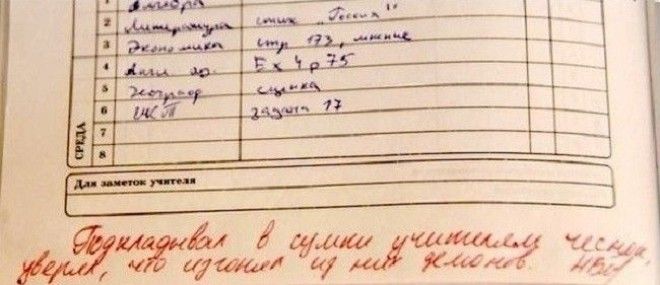 1 Алгебра
2 Литература стих „Госких"
3 Экономика стр 173, мнение
4 Англ яз. Ex 4 p 75
5 географ сценка
6 задача 17
7
8
СРЕДА
Для заметок учителя
Подкладывал в сумки учителям чеснок,
уверял, что изгонял из них демонов.